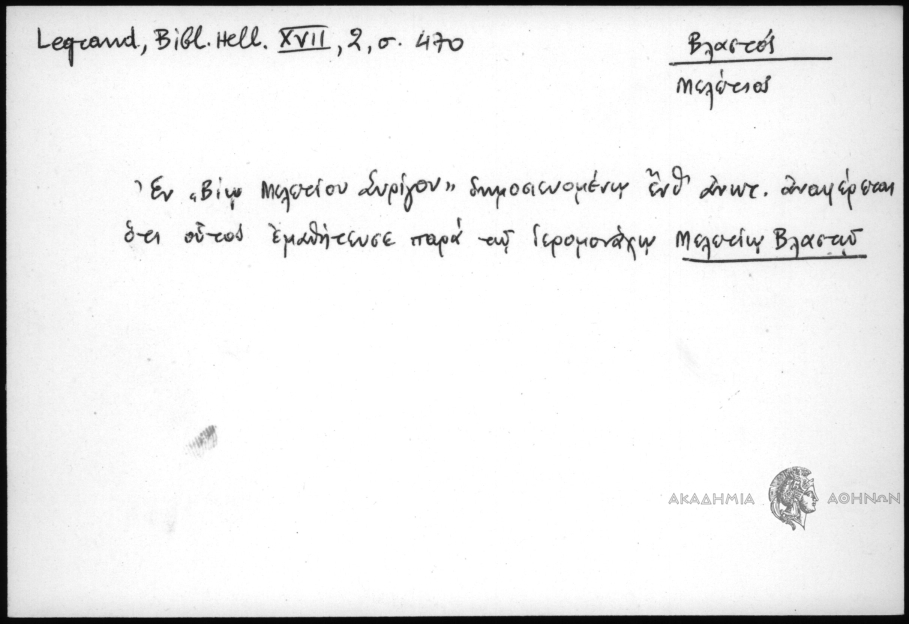 Legrand, Bibl. Hell. XVII, 2, σ. 470
Βλαστός
Μελέτιος
Ἐν „Βίῳ Μελετίου Συρίγου" δημοσιευομένῳ ἔνθ' ἀνωτ. ἀναφέρεται
ὅτι οὗτος ἐμαθήτευσε παρὰ τῷ ἱερομονάχῳ Μελετίῳ Βλαστῷ
ΑΚΑΔΗΜΙΑ ΑΘΗΝΩΝ